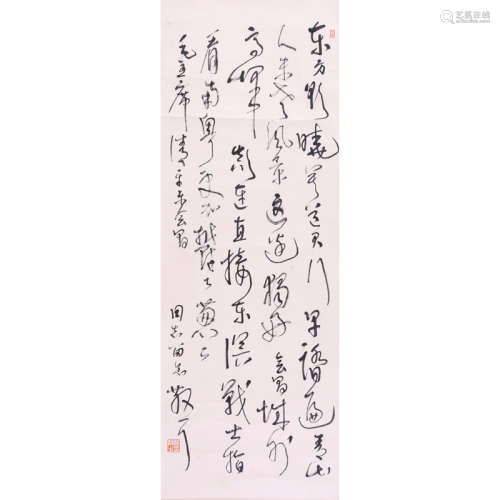 东方欲晓莫道君行早踏遍青山
人未老风景这边独好会昌城外
高峰颠连直接东溟战士指
看南粤更加郁郁葱葱
毛主席清平乐会昌
同志留念